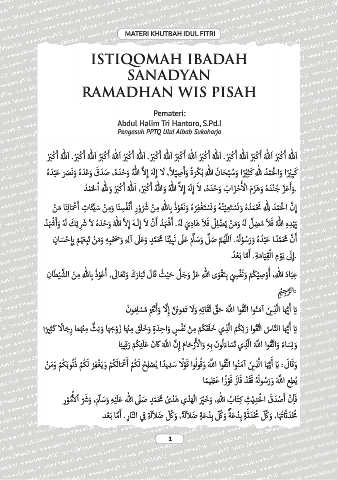 MATERI KHUTBAH IDUL FITRI
ISTIQOMAH IBADAH
SANADYAN
RAMADHAN WIS PISAH
Pemateri:
Abdul Halim Tri Hantoro, S.Pd.I
Pengasuh PPTQ Ulul Albab Sukoharjo
اَللهُ أَكْبَرُ اَللهُ أَكْبَرُ اَللهُ أَكْبَرُ. اَللهُ أَكْبَرُ اَللهُ أَكْبَرُ اَللهُ أَكْبَرُ. اَللهُ أَكْبَرُ اَللهُ أَكْبَرُ. اَللهُ أَكْبَرُ
كَبِيْرًا وَالْحَمْدُ لِلَّهِ كَثِيْرًا وَسُبْحَانَ اللهِ بُكْرَةً وَأَصِيْلاً، لَا إِلَهَ إِلَّا اللهُ وَحْدَهُ، صَدَقَ وَعْدَهُ وَنَصَرَ عَبْدَهُ
وَأَعَزَّ جُنْدَهُ وَهَزَمَ الْأَحْزَابَ وَحْدَهُ، لَا إِلَهَ إِلَّا اللهُ وَاللهُ أَكْبَرُ. اَللهُ أَكْبَرُ وَلِلَّهِ الْحَمْدُ.
إِنَّ الْحَمْدَ لِلَّهِ نَحْمَدُهُ وَنَسْتَعِيْنُهُ وَنَسْتَغْفِرُهُ وَنَعُوْذُ بِاللهِ مِنْ شُرُوْرِ أَنْفُسِنَا وَمِنْ سَيِّئَاتِ أَعْمَالِنَا مَنْ
يَهْدِهِ اللهُ فَلَا مُضِلَّ لَهُ وَمَنْ يُضْلِلْ فَلَا هَادِيَ لَهُ. أَشْهَدُ أَنْ لَا إِلَهَ إِلَّا اللهُ وَحْدَهُ لَا شَرِيْكَ لَهُ وَأَشْهَدُ
أَنَّ مُحَمَّدًا عَبْدُهُ وَرَسُوْلُهُ. اَللَّهُمَّ صَلِّ وَسَلِّمْ عَلَى نَبِيِّنَا مُحَمَّدٍ وَعَلَى آلِهِ وَصَحْبِهِ وَمَنْ تَبِعَهُمْ بِإِحْسَانٍ
إِلَى يَوْمِ الْقِيَامَةِ. أَمَّا بَعْدُ.
عِبَادَ اللهِ، أُوْصِيْكُمْ وَنَفْسِيْ بِتَقْوَى اللهِ عَزَّ وَجَلَّ حَيْثُ قَالَ تَبَارَكَ وَتَعَالَى، أَعُوْذُ بِاللهِ مِنَ الشَّيْطَانِ
الرَّجِيْمِ:
يَا أَيُّهَا الَّذِيْنَ آمَنُوا اتَّقُوا اللهَ حَقَّ تُقَاتِهِ وَلَا تَمُوْتُنَّ إِلَّا وَأَنْتُمْ مُسْلِمُوْنَ
يَا أَيُّهَا النَّاسُ اتَّقُوا رَبَّكُمُ الَّذِيْ خَلَقَكُمْ مِنْ نَفْسٍ وَاحِدَةٍ وَخَلَقَ مِنْهَا زَوْجَهَا وَبَثَّ مِنْهُمَا رِجَالًا كَثِيْرًا
وَنِسَاءً وَاتَّقُوا اللهَ الَّذِيْ تَسَاءَلُوْنَ بِهِ وَالْأَرْحَامَ إِنَّ اللهَ كَانَ عَلَيْكُمْ رَقِيْبًا
وَقَالَ: يَا أَيُّهَا الَّذِيْنَ آمَنُوا اتَّقُوا اللهَ وَقُوْلُوا قَوْلًا سَدِيْدًا يُصْلِحْ لَكُمْ أَعْمَالَكُمْ وَيَغْفِرْ لَكُمْ ذُنُوْبَكُمْ وَمَنْ
يُطِعِ اللهَ وَرَسُوْلَهُ فَقَدْ فَازَ فَوْزًا عَظِيْمًا
فَإِنَّ أَصْدَقَ الْحَدِيْثِ كِتَابُ اللهِ، وَخَيْرَ الْهَدْيِ هَدْيُ مُحَمَّدٍ صَلَّى اللهُ عَلَيْهِ وَسَلَّمَ، وَشَرَّ الْأُمُوْرِ
مُحْدَثَاتُهَا، وَكُلَّ مُحْدَثَةٍ بِدْعَةٌ وَكُلَّ بِدْعَةٍ ضَلَالَةٌ، وَكُلَّ ضَلَالَةٍ فِي النَّارِ. أَمَّا بَعْدُ.
1